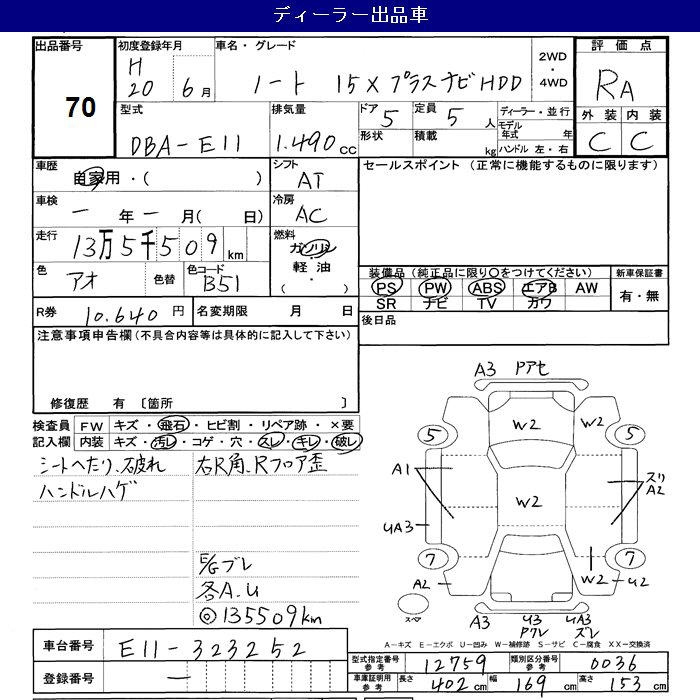 ディーラー出品車
出品番号 70
初度登録年月 H20 6月
車名・グレード ノート 15X プラスナビHDD
2WD・4WD
評価点 RA
外装 内装
C C
型式 DBA-E11
排気量 1.490cc
ドア 5
定員 5人
形状
積載 kg
ディーラー・並行
モデル年式 年
ハンドル 左・右
車歴 自家用・( )
シフト AT
セールスポイント (正常に機能するものに限ります)
車検 ー年ー月(日)
冷房 AC
走行 13万5千509km
燃料 ガソリン 軽油 ( ・ )
色 アオ 色替
色コード B51
装備品(純正品に限り○をつけてください)
PS PW ABS エアB AW
SR ナビ TV カワ
新車保証書
有・無
R券 10.640円
名変期限 月 日
後日品
注意事項申告欄(不具合内容等は具体的に記入して下さい)
修復歴 有 〔箇所 〕
検査員記入欄
FW キズ・飛石・ヒビ割・リペア跡・×要
内装 キズ・汚レ・コゲ・穴・スレ・キレ・破レ
シートヘたり、破れ
ハンドルハゲ
右R角、Rフロア歪
E/Gブレ
各A.U
◎135509km
A3 Pアセ
W2 W2
5 5
A1 W2 スリA2
UA3
7 7
A2 W2 U2
スペア
A3 U3 Pワレ UA3 ズレ
A-キズ E-エクボ U-凹み W-補修跡 S-サビ C-腐食 XX-交換済
車台番号 E11-323252
登録番号 ー
型式指定番号 参考 12759
類別区分番号 参考 0036
車庫証明用 参考 長さ 402cm 幅 169cm 高さ 153cm